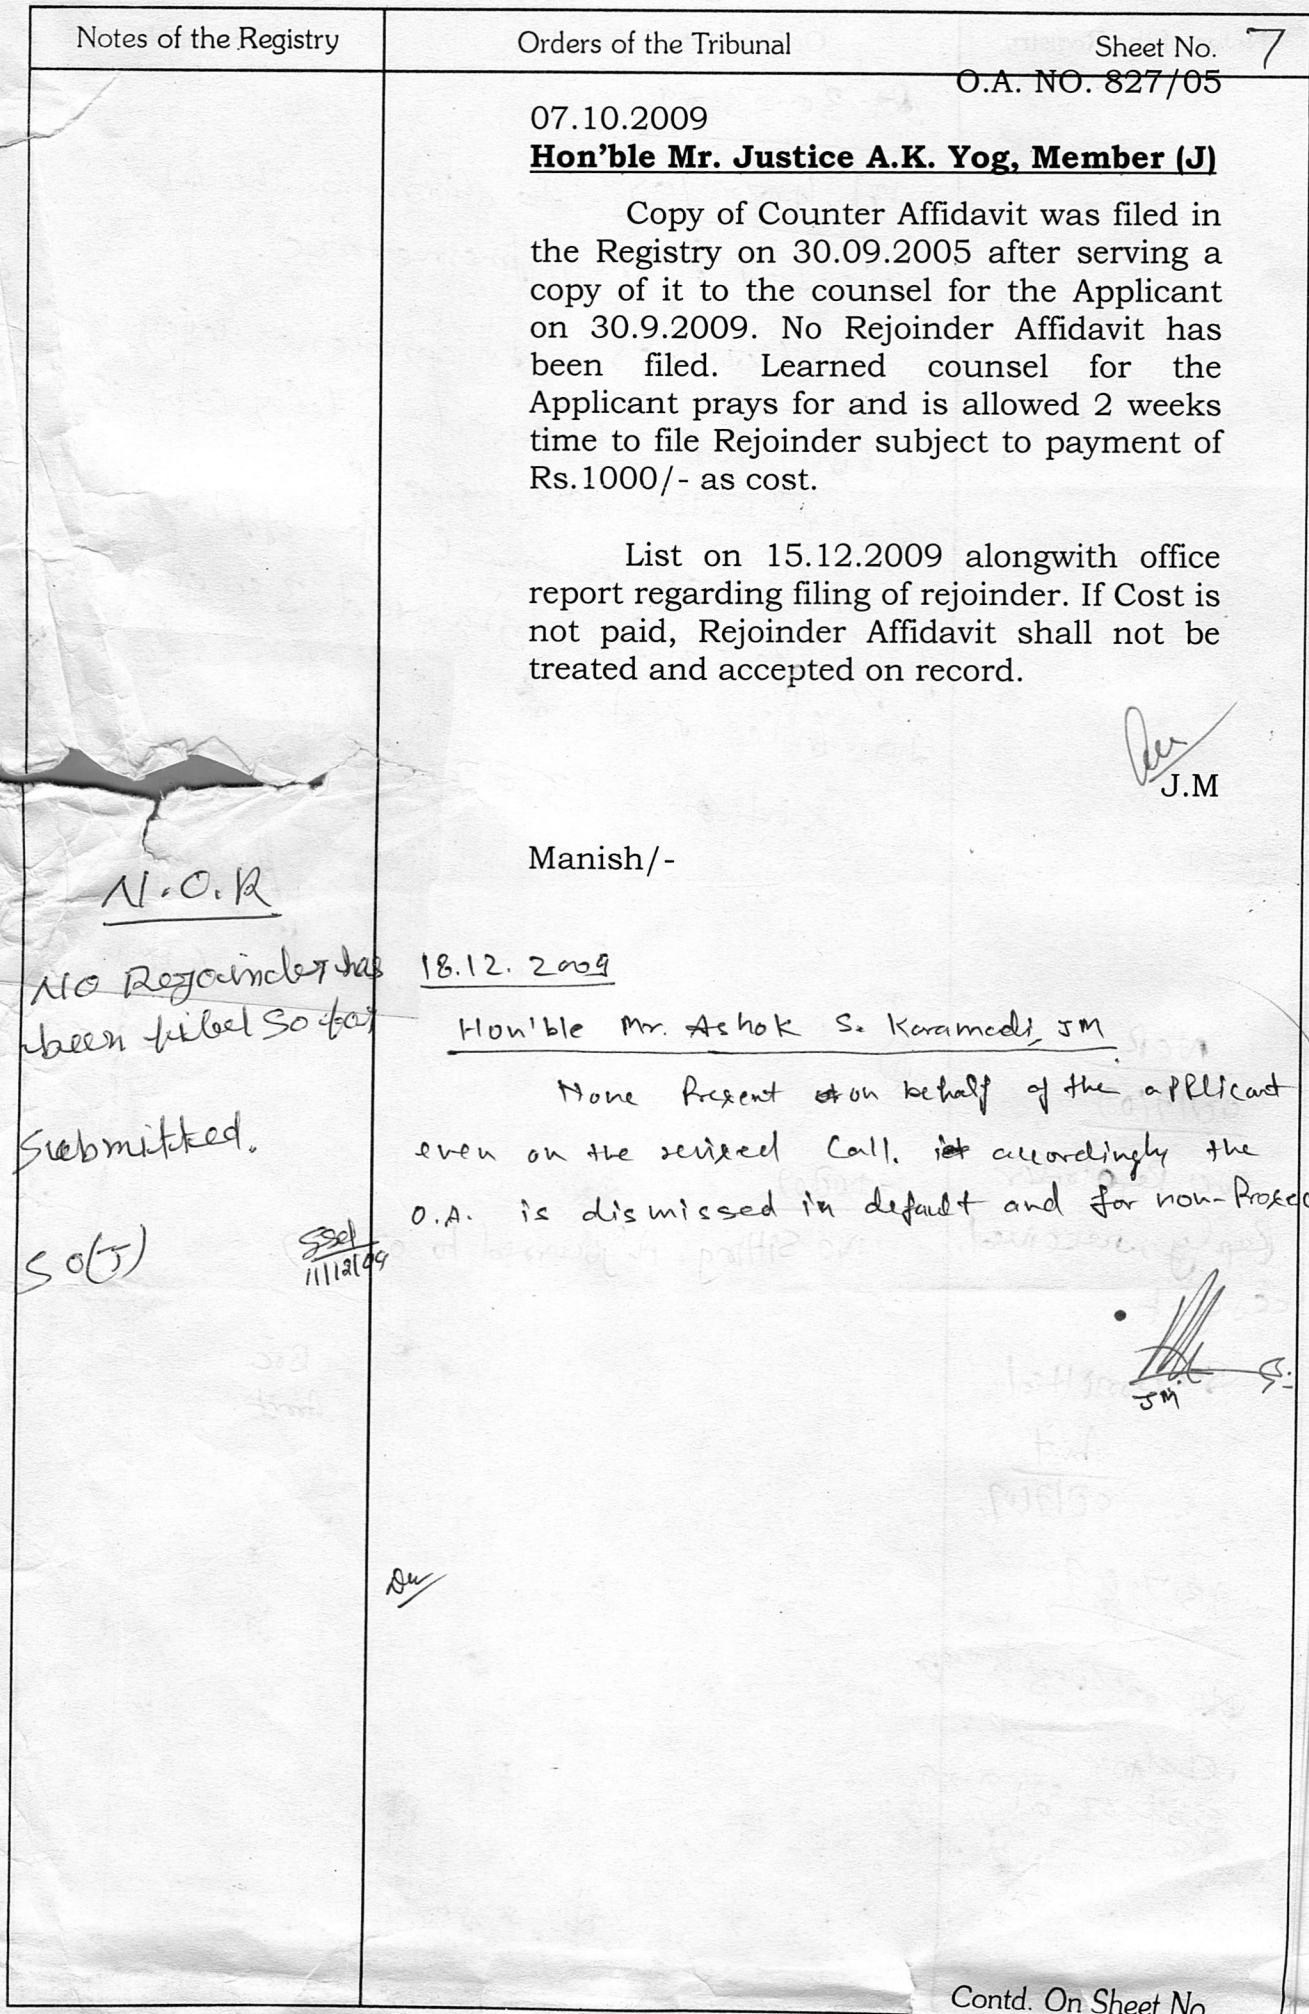 Notes of the Registry
Orders of the Tribunal
Sheet No. 7
O.A. NO. 827/05
07.10.2009
Hon'ble Mr. Justice A.K. Yog, Member (J)
Copy of Counter Affidavit was filed in
the Registry on 30.09.2005 after serving a
copy of it to the counsel for the Applicant
on 30.9.2009. No Rejoinder Affidavit has
been filed. Learned counsel for the
Applicant prays for and is allowed 2 weeks
time to file Rejoinder subject to payment of
Rs.1000/- as cost.
List on 15.12.2009 alongwith office
report regarding filing of rejoinder. If Cost is
not paid, Rejoinder Affidavit shall not be
treated and accepted on record.
J.M
Manish/-
N.O.R
No Rejoinder has
been filed so far
Submitted.
SO(J)
11/12/09
18.12.2009
Hon'ble Mr. Ashok S. Karamadi, JM
None Present on behalf of the applicant
even on the revised Call. accordingly the
O.A. is dismissed in default and for non-Prosec
JM
Contd. On Sheet No